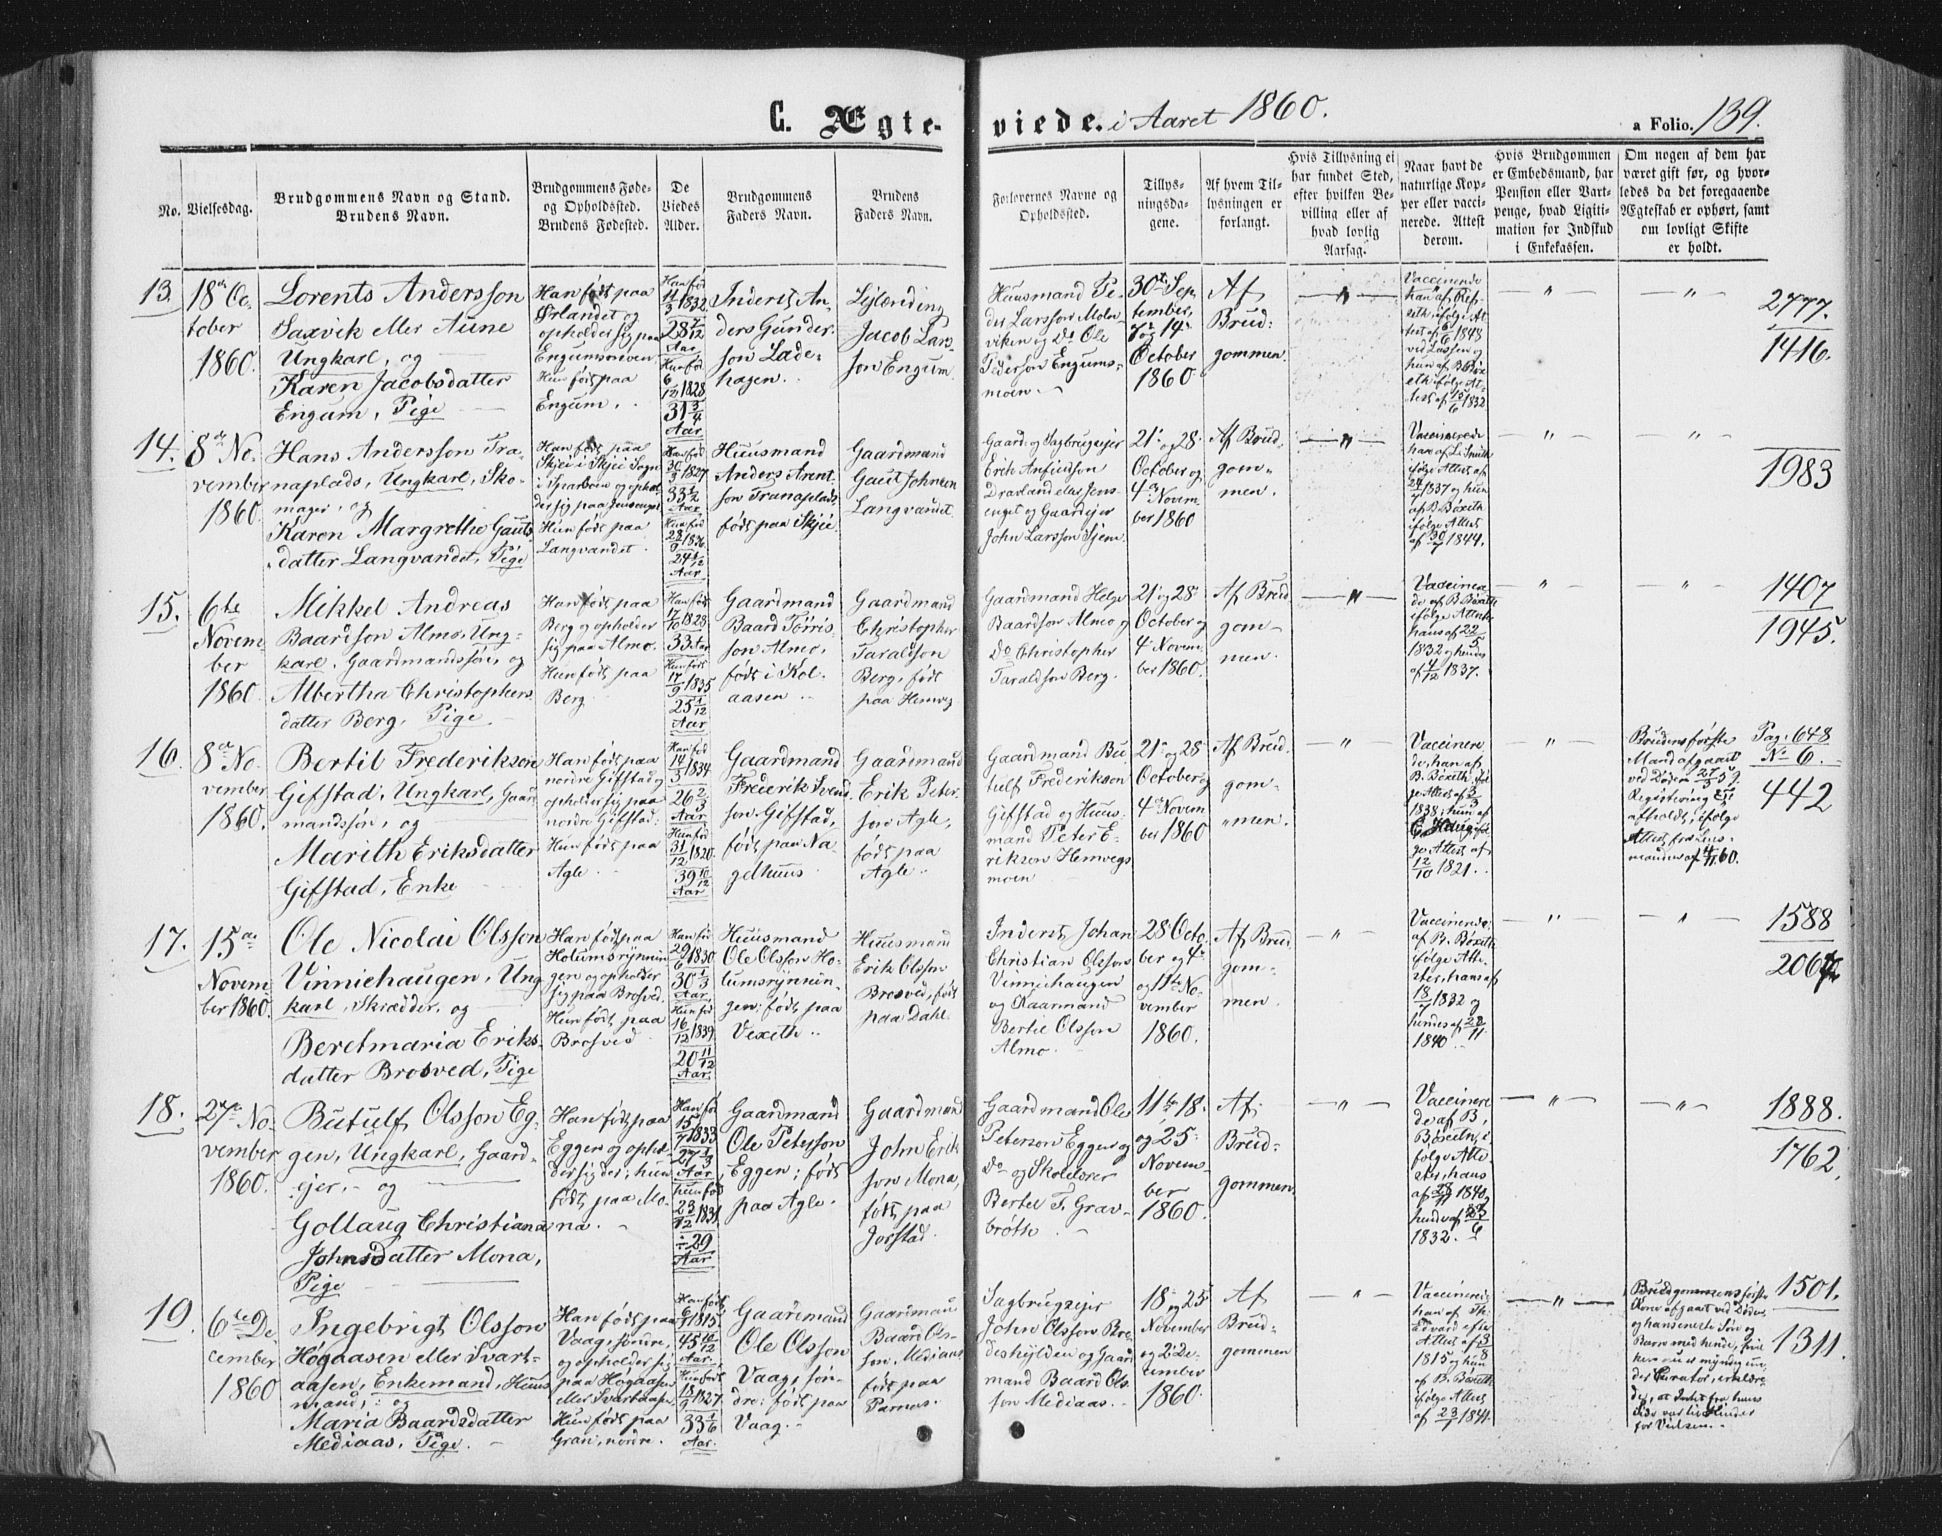 C. Ægte-
viede. i Aaret 1860.
a Folio. 139.
No.
Vielsesdag.
Brudgommens Navn og Stand.
Brudens Navn.
Brudgommens Føde-
og Opholdssted.
Brudens Fødested.
De
Viedes
Alder.
Brudgommens
Faders Navn.
Brudens
Faders Navn.
Forlovernes Navne og
Opholdssted.
Tillys-
ningsda-
gene.
Af hvem Til-
lysningen er
forlangt.
Hvis Tillysning ei
har fundet Sted,
efter hvilken Be-
villing eller af
hvad lovlig
Aarsag.
Naar havt de
naturlige Kop-
per eller vacci-
nerede. Attest
derom.
Hvis Brudgommen
er Embedsmand, har
Pension eller Vart-
penge, hvad Ligiti-
mation for Indskud
i Enkekassen.
Om nogen af dem har
været gift før, og hvor-
ledes da det foregaaende
Ægteskab er ophørt, samt
om lovligt Skifte
er holdt.
13.
18de Oc-
tober
1860.
Lorents Andersson
Saxvik eller Aune
Ungkarl, og
Karen Jacobsdatter
Engum, Pige
Han født paa
Ørlandet og
opholder sig paa
Engumsmoen.
Hun født paa
Engum.
Han fød
1832
28 7/12
Aar
Hun fød
6
12 1828
31 3/4
Aar
Inderst An-
ders Gunder-
son Lade-
hagen.
Leilænding
Jacob Lars-
son Engum
Huusmand Pe-
der Larsson Molm-
viken og Do Ole
Pederson Engums-
moen.
30te Sep-
tember,
7de og 14de
October
1860
Af
Brud-
gommen.
Vaccinerede
1832
2777.
1416.
14.
8de No-
vember
1860.
Hans Andersson Tra-
naplads, Ungkarl, Sko-
mager, og
Karen Margrethe Gauts-
datter Langvandet, Pige
Han født paa
Skjei i Skjei Sogn
i Sparboen og ophol-
der sig paa Jensenget
Hun født paa
Langvandet.
Han fød
30
3 1827
33 1/2
Aar
Hun fød
24 1/12
Aar
Huusmand
Anders Arnt-
son Tranaplads
født paa Skjei.
Gaardmand
Gaut Johnsen
Langvandet.
Gaard- og Sagbrugsejer
Erik Anfindson
Dravland eller Jens-
enget og Gaardejer
John Larsson Sjem
21de og 28de
October og
4de Novem-
ber 1860
Af Brud-
gom-
men.
Vaccinerede
han af L. Smith
ifølge Attest
1837 og hun
af B. Boxeth
ifølge Attest
af 30/7 1844.
1983
15.
6te
Novem-
ber
1860
Mikkel Andreas
Baardson Almo, Ung-
karl, Gaardmandssøn, og
Albertha Christophers-
datter Berg, Pige.
Han født paa
Berg og opholder
sig paa Almo.
Hun født paa
Berg
Han fød
33 Aar
Hun født
17
9 1835
25 1/12
Aar
Gaardmand
Baard Tørris-
son Almo,
født i Kol-
aasen
Gaardmand
Christopher
Taraldson
Berg, født
paa Hemveg
Gaardmand Helge
Baardson Almo og
Do Christopher
Taraldson Berg.
21de og 28de
October og
4de Novem-
ber 1860.
Af Brud-
gom-
men.
Vaccinere-
de af B. Boxeth
ifølge Attester
hans af 22/5
1832 og hendes
af 4/12 1837.
1407
1945.
16.
8de No-
vember
1860.
Bertil Frederikson
Gifstad, Ungkarl, Gaard-
mandssøn, og
Marith Eriksdatter
Gifstad, Enke
Han født paa
nordre Gifstad og
opholder sig paa
nordre Gifstad.
Hun født paa
Agle.
Han fød
14
3 1834
26 2/3
Aar
Hun fød
31
12 1820
39 10/12
Aar
Gaardmand
Frederik Svend-
son Gifstad,
født paa Na-
gelhuus
Gaardmand
Erik Peter-
son Agle,
født paa
Agle.
Gaardmand Bu-
tulf Frederikson
Gifstad og Huus-
mand Peter E-
rikson Hemvegs-
moen
21de og 28de
October og
4de Novem-
ber 1860
Af Brud-
gom-
men.
Vaccinere-
de, han af
B. Boxeth, iføl-
ge Attest af
1838; hun af
ge Attest af
12/10 1821.
Brudens første
Mand afgaaet
ved Døden
Registrering
afholdt, ifølge
Attest fra Lens-
manden af 4/11 60.
Pag: 648
No 6.
442
17.
15de
Novem-
ber 1860.
Ole Nicolai Olsson
Vinniehaugen, Ung-
karl, Skrædder, og
Beretmaria Eriks-
datter Brosved, Pige
Han født paa
Holumsrynnin-
gen og opholder
sig paa Brosved.
Hun født paa
Brosved
Han fød
29
6 1830
30 1/3
Aar
Hun fød
16
12 1839
20 11/12
Aar
Huusmand
Ole Olsson Ho-
lumsrynnin-
gen; født paa
Vexeth
Huusmand
Erik Olsson
Brosved, født
paa Dahl
Inderst Johan
Christian Oleson
Vinniehaugen
og Gaardmand
Bertil Olsson
Almo.
28 Octo-
ber og 4de
og 11te No-
vember
1860.
Af Brud-
gom-
men.
Vaccinerede
af B. Boxeth
ifølge Atte-
ster, hans af
18/7 1832 og
hendes af 28/11
1840
1588
18.
27de No-
vember
1860.
Butulf Olsson Eg-
gen, Ungkarl, Gaard-
ejer, og
Gollaug Christiana
Johnsdatter Mona,
Pige
Han født paa
Eggen og ophol-
der sig der; hun
født paa Mo-
na.
Han fød
15
7 1833
27 1/3
Aar
Hun fød
23
12 1831
÷ 29
Aar
Gaardmand
Ole Petersson
Eggen; født
paa Agle.
Gaardmand
John Erik-
son Mona,
født paa
Jorstad.
Gaardmand Ole
Peterson Eggen og
Do og Skolelærer
Bertel F. Grav-
brøtt
11te 18de
og 25de
Novem-
ber
1860.
Af
Brud-
gommen
Vaccinere-
de af B.
Boxeth, i-
følge Atte-
ster, hans
af 28/11 1840
hendes af
1832.
1888.
1762.
19.
6te De-
cember
1860
Ingebrigt Olsson
Høgaasen eller Svart-
aasen, Enkemand, Huus-
mand, og
Maria Baardsdatter
Mediaas, Pige.
Han født paa
Vaag, søndre,
og opholder sig
paa Høgaasen
eller Svartaasen.
Hun født paa
Gran, nordre.
Han født
1815
45 10/12
Aar.
Hun født
18
9 1827
33 1/6
Aar.
Gaardmand
Ole Olsson
Vaag, søn-
dre; født paa
Vaag.
Gaardmand
Baard Ols-
son Mediaas
født paa
Parnas.
Sagbrugsejer
John Olsson Bre-
deshylden og Gaard-
mand Baard Ols-
son Mediaas.
18de og 25de
November
og 2de De-
cember
1860.
Af
Brud-
gommen
Vaccinerede
Attest af 3/8
1815 og hun
af B. Boxeth
ifølge Attest
af 23/7 1841.
Brudgommens første
Kone afgaaet ved Døden,
1501.
1311.